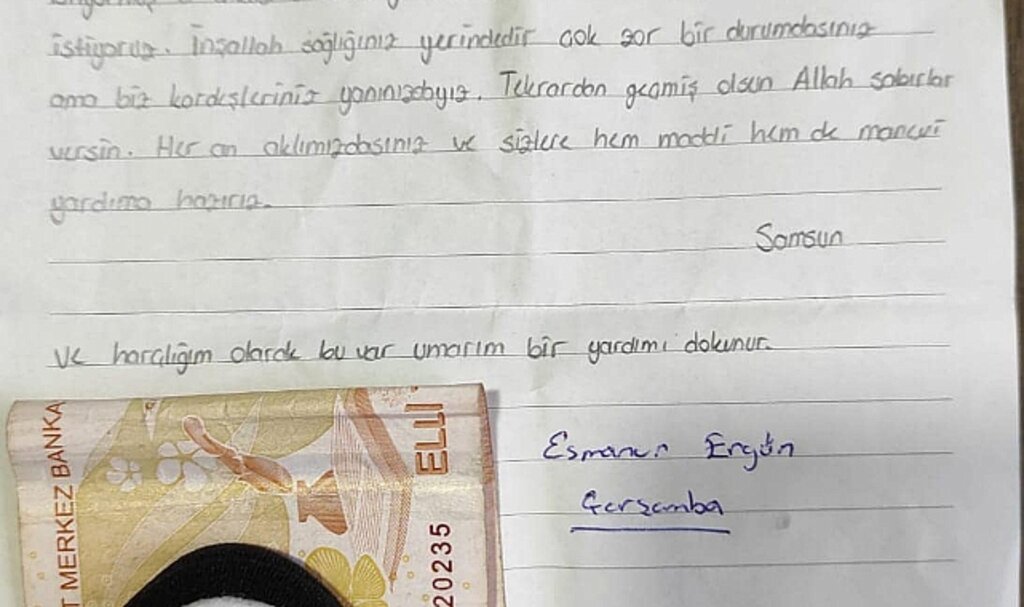 istiyoruz. İnşallah sağlığınız yerindedir çok zor bir durumdasınız
ama biz kardeşleriniz yanınızdayız. Tekrardan geçmiş olsun Allah sabırlar
versin. Her an aklımızdasınız ve sizlere hem maddi hem de manevi
yardıma hazırız.
Samsun
ve harçlığım olarak bu var umarım bir yardımı dokunur.
Esmanur Ergün
Çarşamba
T MERKEZ BANKA
ELLİ
20235